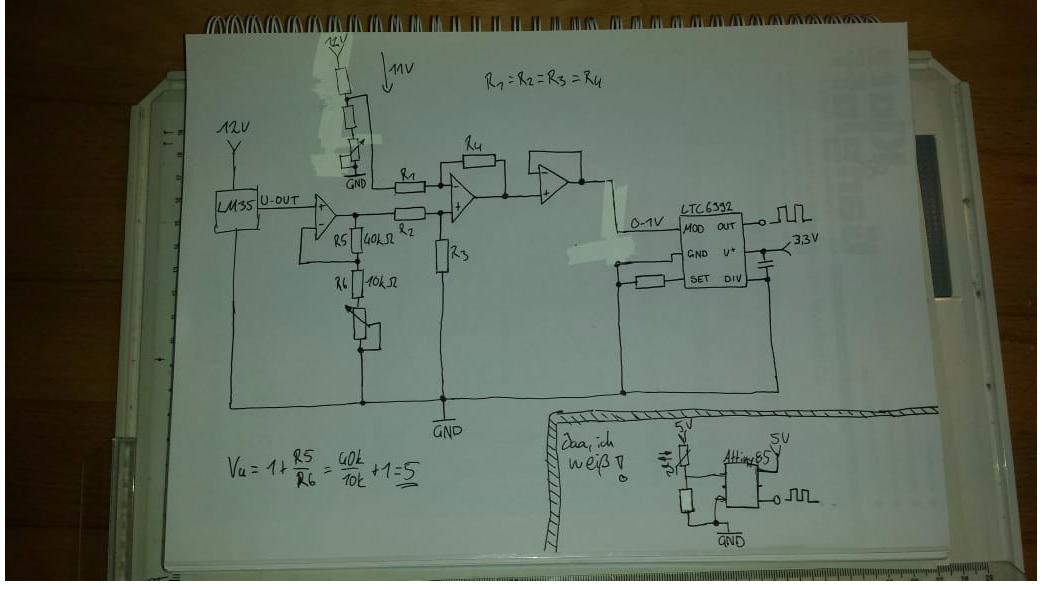 11V
11V
R1=R2=R3=R4
12V
R4
GND
R1
LM35
U-OUT
R2
R5
40kΩ
R3
R6
10kΩ
0-1V
LTC6992
MOD OUT
GND V+
SET DIV
3,3V
GND
Vu = 1 + R5/R6 = 40k/10k + 1 = 5
Jaa, ich
weiß!
5V
5V
Attiny85
GND